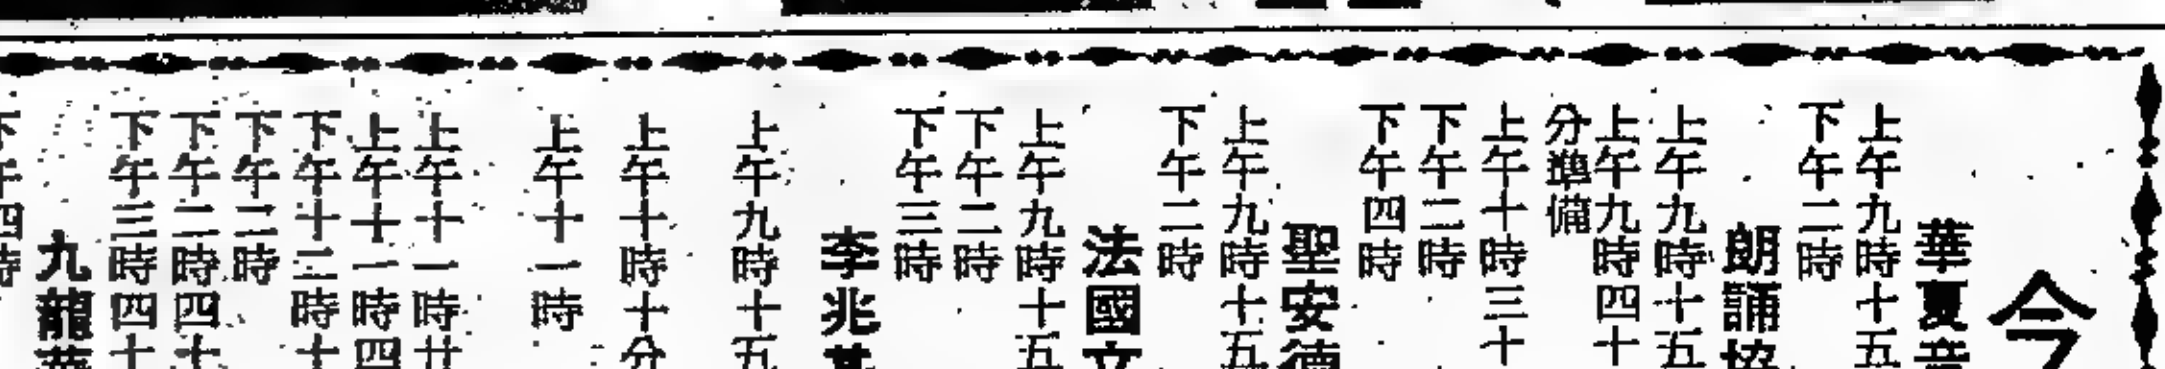 今
華夏音
上午九時十五
下午二時
朗誦協
上午九時十五
上午九時四十
分準備
上午十時三十
下午二時
下午四時
聖安德
上午九時十五
下午二時
法國文
上午九時十五
下午二時
下午三時
李兆基
上午九時十五
上午十時十分
上午十一時
上午十一時廿
上午十一時四
下午十二時十
下午二時
下午二時四十
下午三時四十
九龍華
下午四時